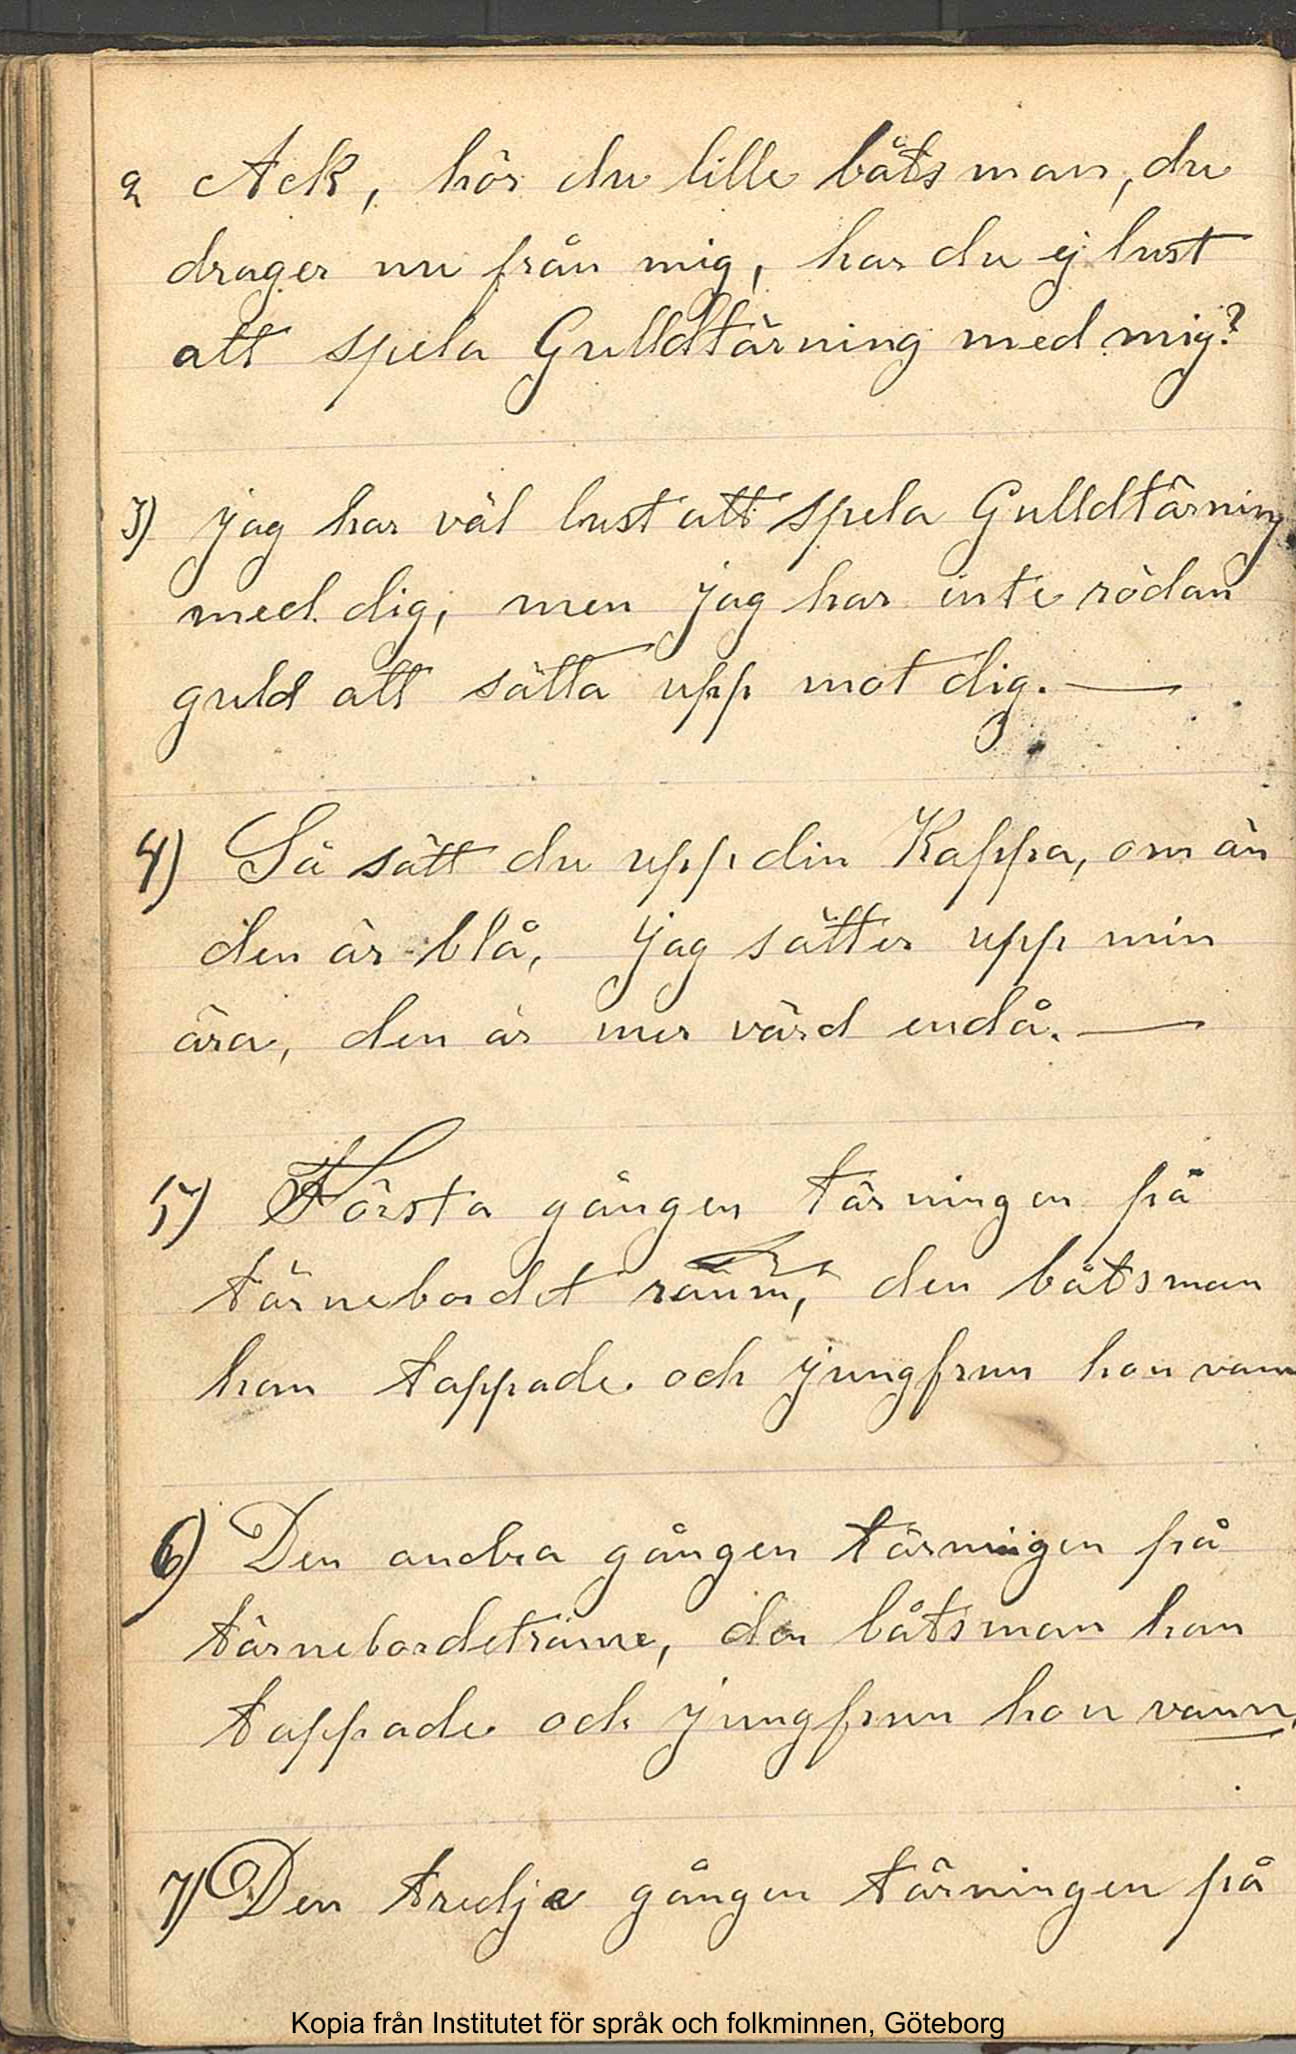 2 Ack, hör du lille båtsman, du
drager nu från mig, har du ej lust
att spela Gulldtärning med mig?
3) jag har väl lust att spela Gulldtärning
med dig, men jag har inte rödan
guld att sätta upp mot dig. —
4) Så sätt du upp din Kappa, om än
den är blå, jag sätter upp min
ära, den är mer värd endå. —
5) Första gången tärningen på
tärnebordet rann, den båtsman
han tappade och jungfrun hon vann
6) Den andra gången tärningen på
tärnebordet rann, den båtsman han
tappade och jungfrun hon vann.
7) Den tredje gången tärningen på
Kopia från Institutet för språk och folkminnen, Göteborg